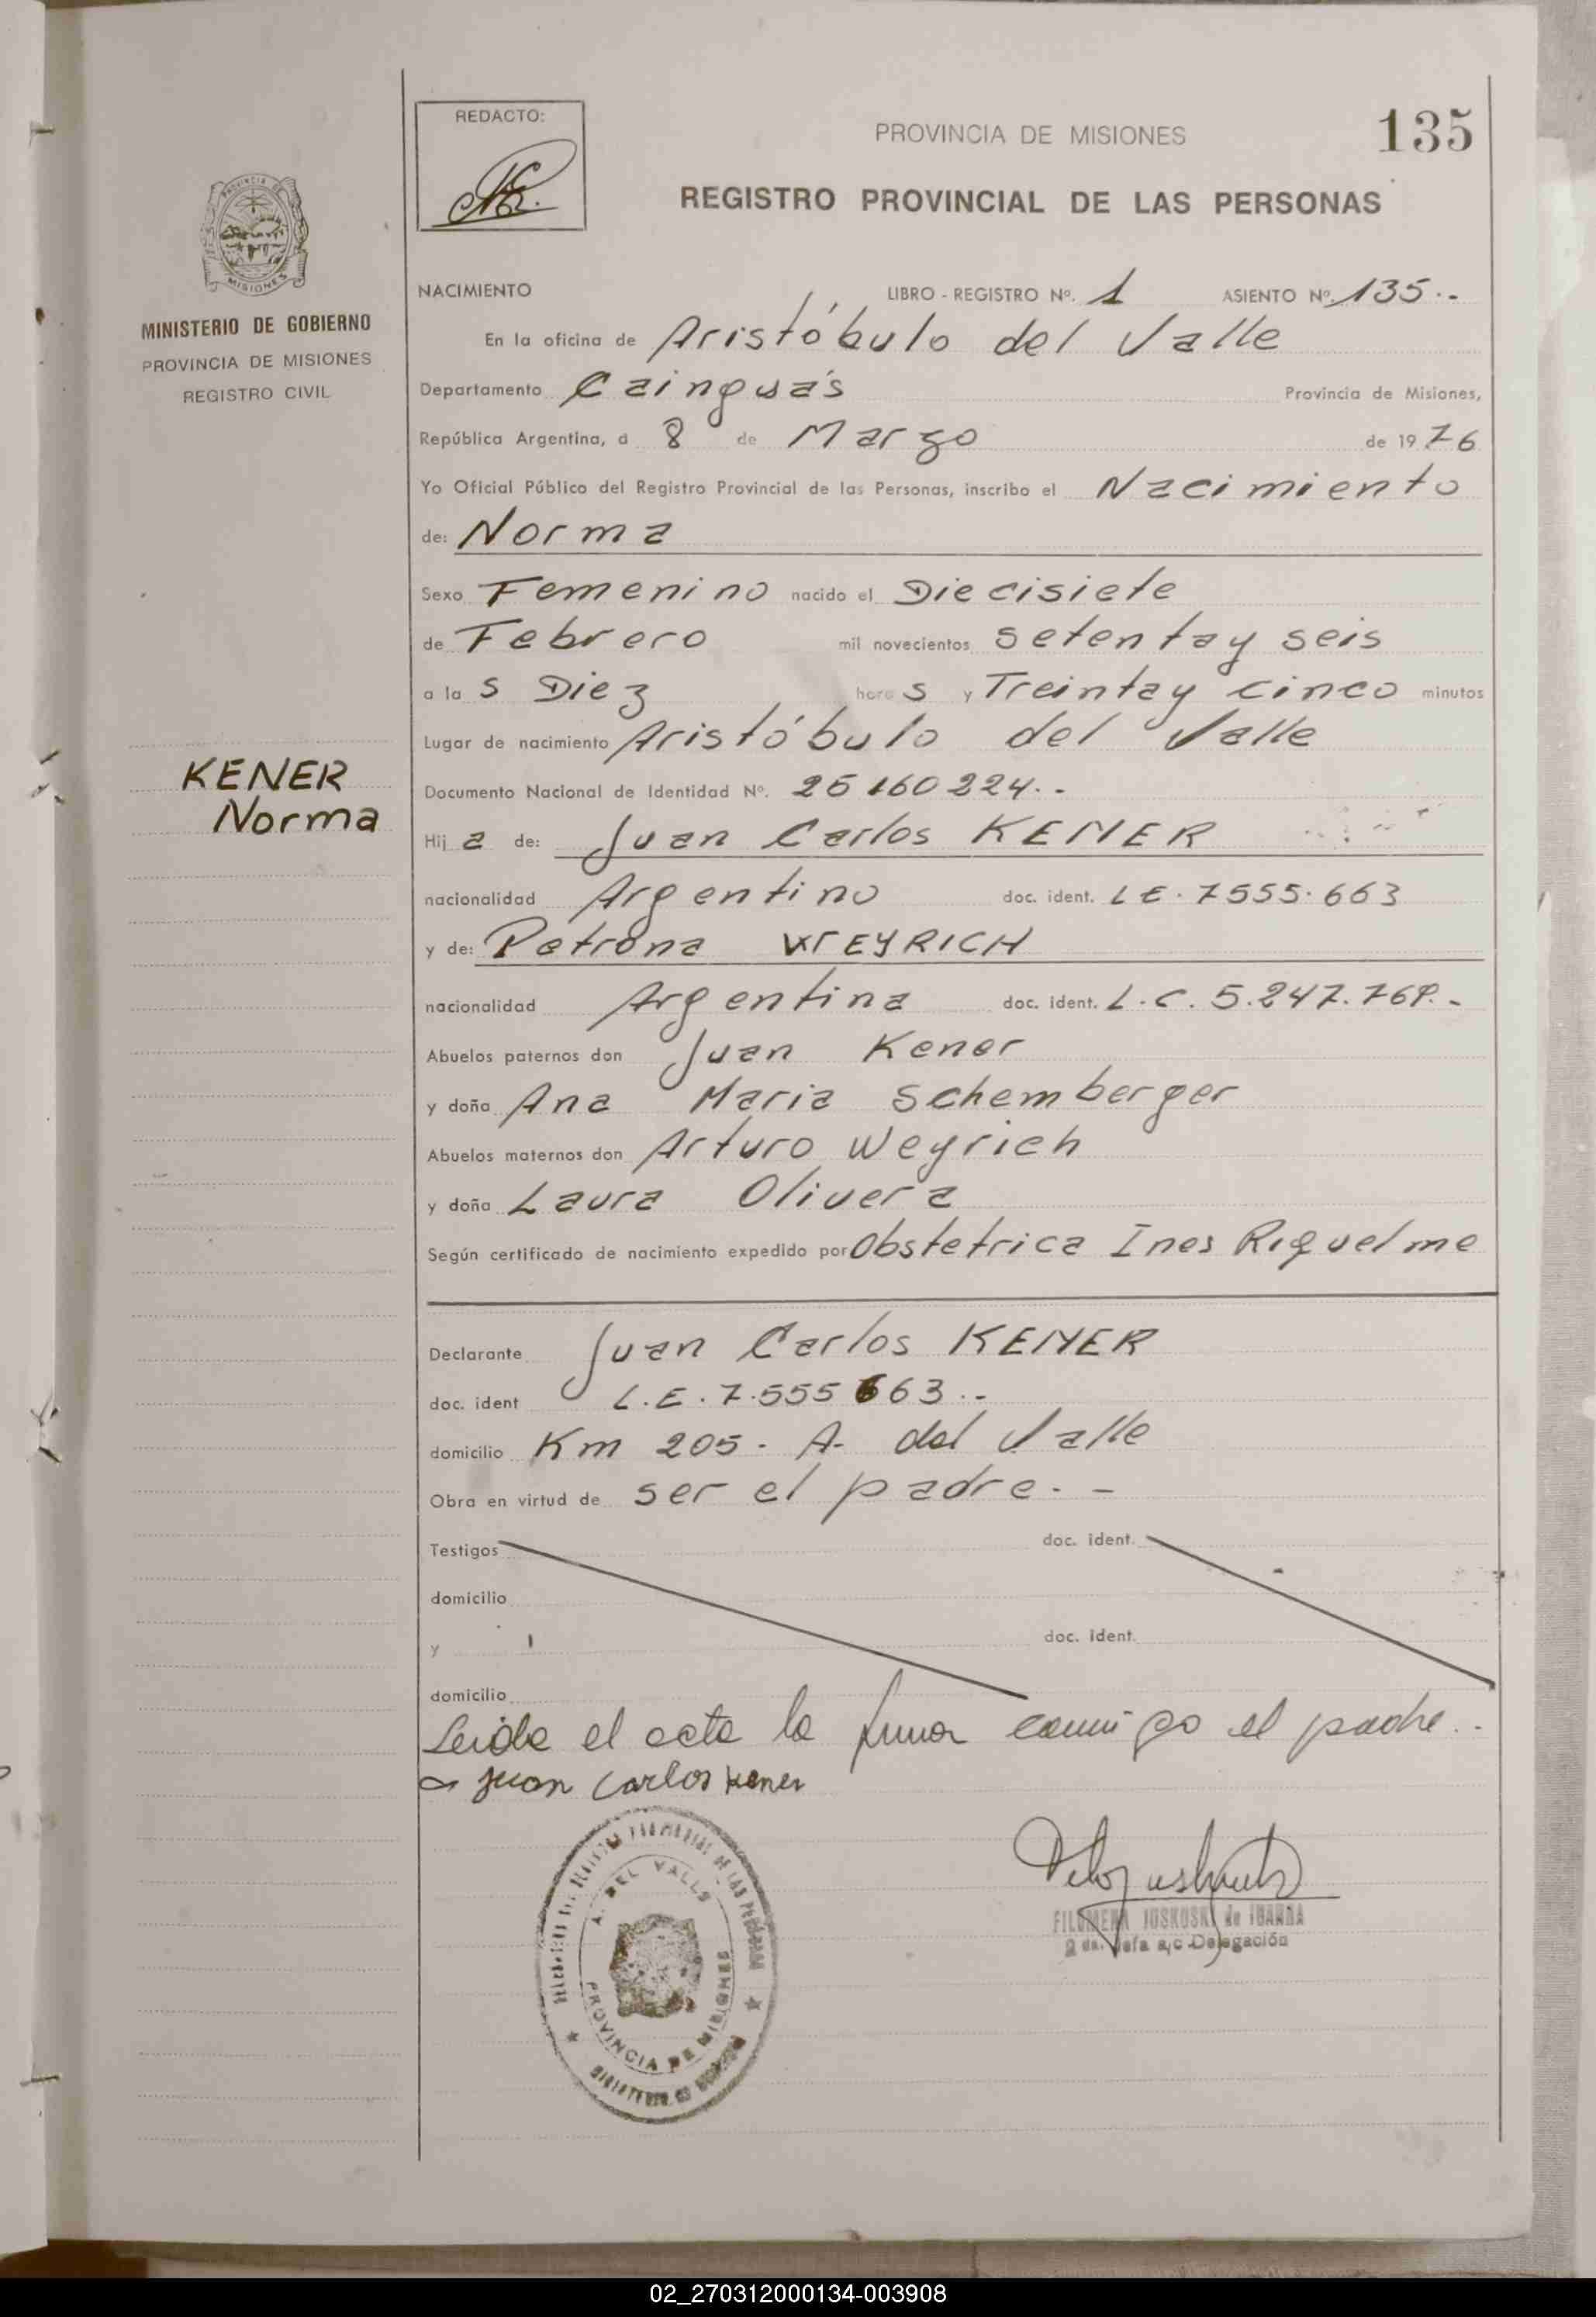 REDACTO:
PROVINCIA DE MISIONES
135
REGISTRO PROVINCIAL DE LAS PERSONAS
PROVINCIA DE
MISIONES
MINISTERIO DE GOBIERNO
PROVINCIA DE MISIONES
REGISTRO CIVIL
KENER
Norma
NACIMIENTO LIBRO - REGISTRO Nº. 1 ASIENTO Nº. 135.-
En la oficina de Aristóbulo del Valle
Departamento Cainguás Provincia de Misiones,
República Argentina, a 8 de Marzo de 1976
Yo Oficial Público del Registro Provincial de las Personas, inscribo el Nacimiento
de: Norma
Sexo Femenino nacido el Diecisiete
de Febrero mil novecientos setentay seis
a la s Diez hora s y Treintay cinco minutos
Lugar de nacimiento Aristóbulo del Valle
Documento Nacional de Identidad Nº. 25160224.-
Hij a de: Juan Carlos KENER
nacionalidad Argentino doc. ident. LE. 7555.663
y de: Petrona WEYRICH
nacionalidad Argentina doc. ident. L.C. 5.247.769.-
Abuelos paternos don Juan Kener
y doña Ana Maria Schemberger
Abuelos maternos don Arturo Weyrich
y doña Laura Olivera
Según certificado de nacimiento expedido por Obstetrica Ines Riquelme
Declarante Juan Carlos KENER
doc. ident L.E. 7.555663.-
domicilio Km 205. A. del Valle
Obra en virtud de ser el padre.-
Testigos doc. ident.
domicilio
y doc. ident.
domicilio
Leida el acta la firma conmigo el padre.-
Juan Carlos Kener
A. DEL VALLE
PROVINCIA DE MISIONES
FILOMENA IUSKOSKI de IBARRA
2da. Jefa a/c Delegación
02_270312000134-003908